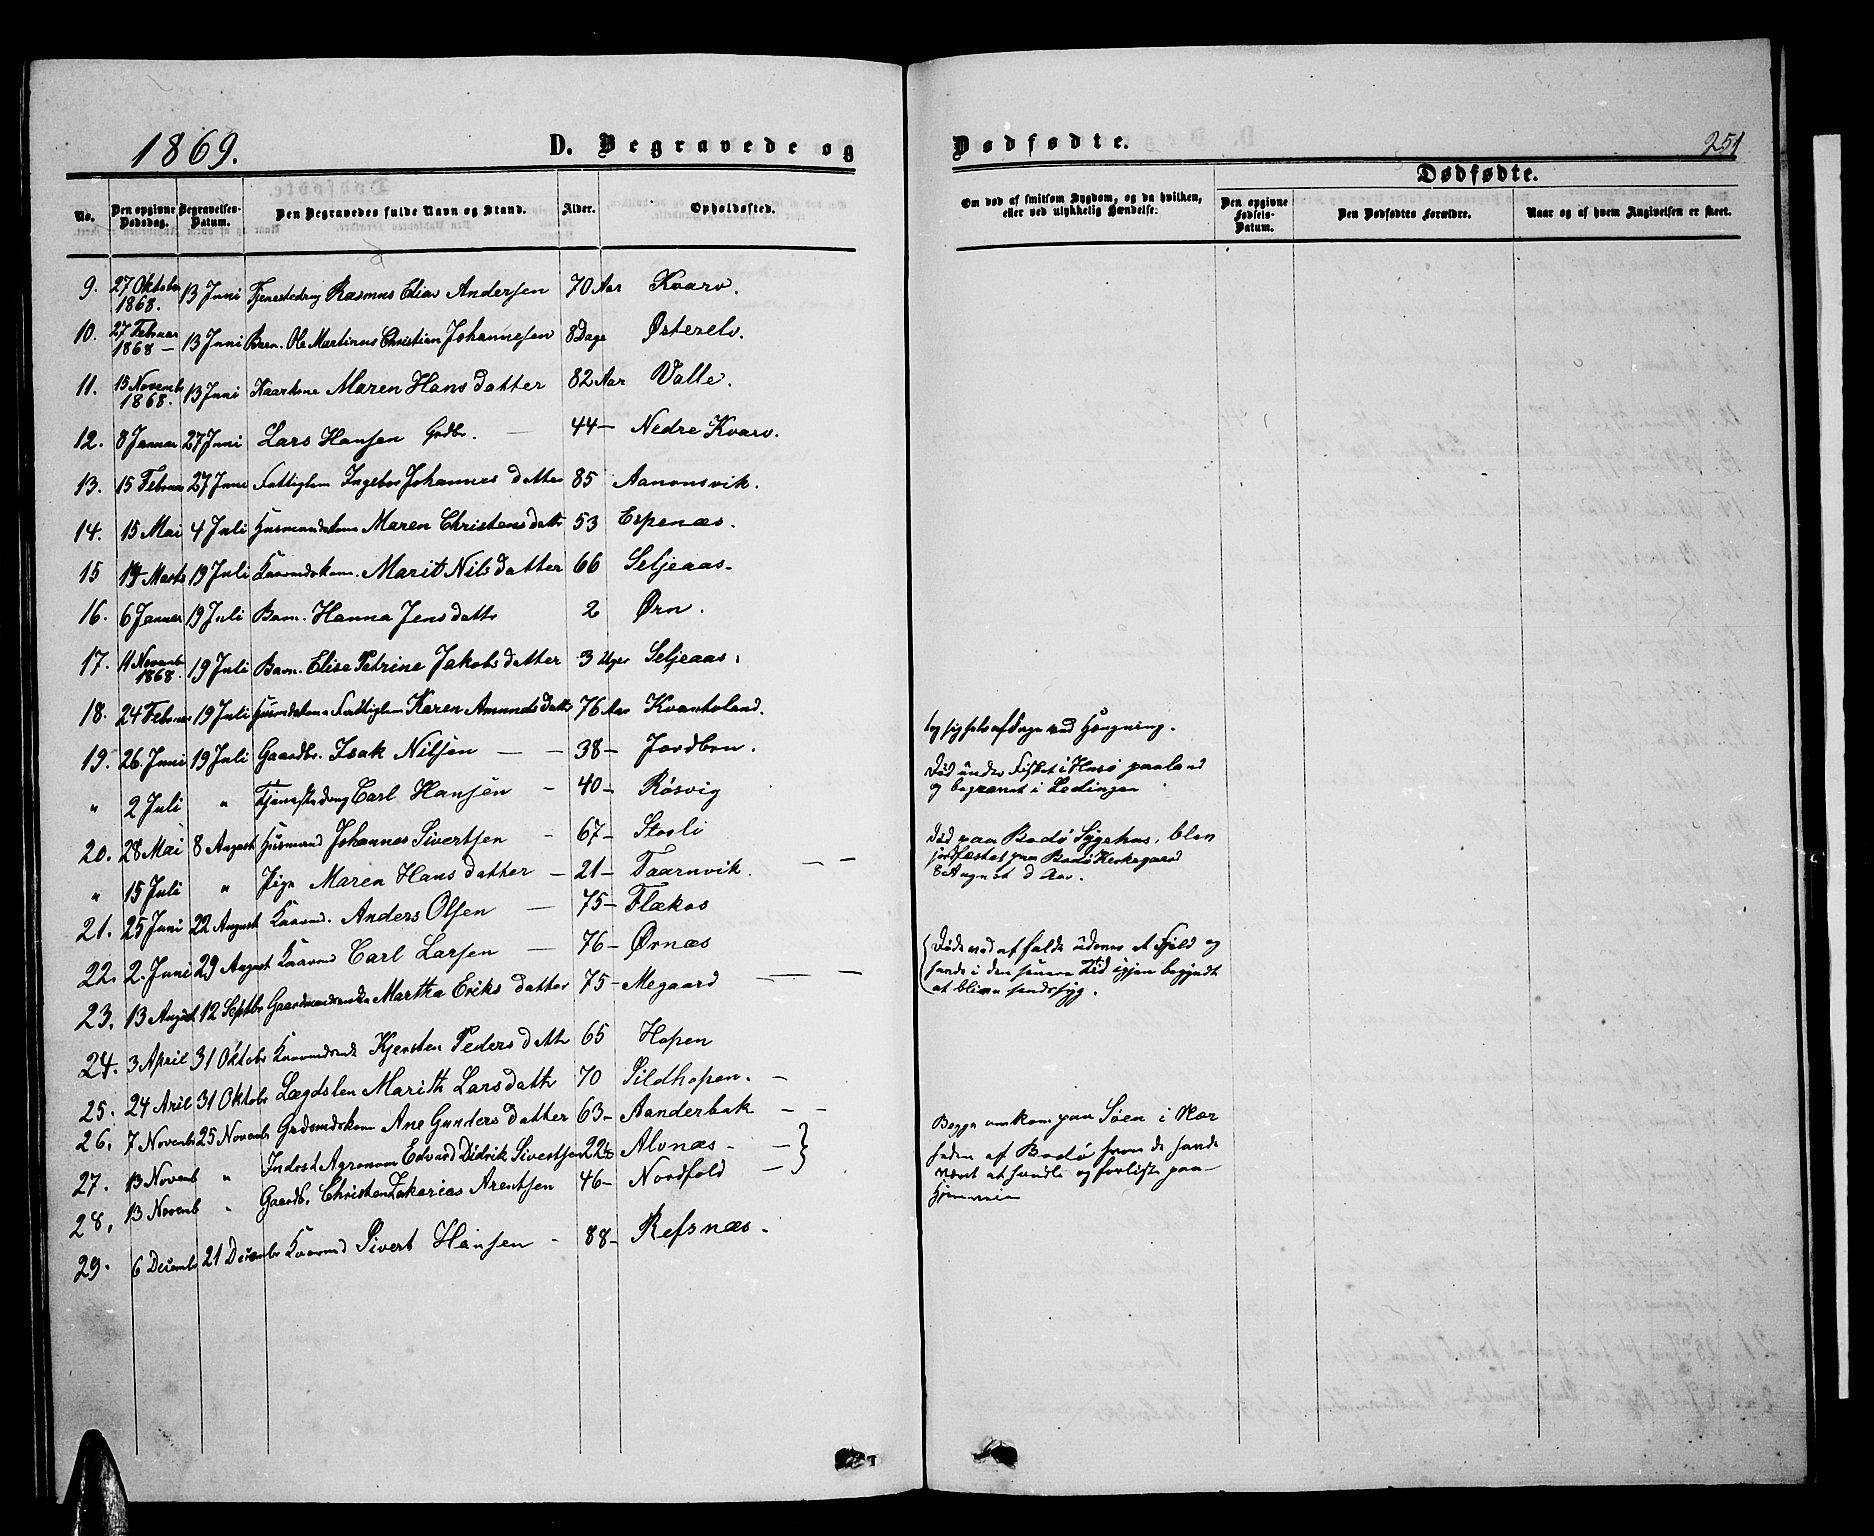 1869.
D. Begravede og
Dødfødte.
251
No.
Den opgivne Dødsdag.
Begravelses-Datum.
Den Begravedes fulde Navn og Stand.
Alder.
Opholdssted.
Om død af smitsom Sygdom, og da hvilken, eller ved ulykkelig Hændelse.
Dødfødte.
Den opgivne Fødsels-Datum.
Den Dødfødtes Forældre.
Naar og af hvem Angivelsen er skeet.
9. 27 Oktober 1868. 13 Juni Tjenestedreng Rasmus Elias Andersen 70 Aar Kvarv.
10. 27 Februar 1868 — 13 Juni Barn. Ole Martinus Christian Johannesen 8 Dage Østerelv.
11. 15 Novemb 1868. 13 Juni Kaarkone Maren Hansdatter 82 Aar Valle.
12. 8 Januar 27 Juni Lars Hansen Grdbr. — 44 — Nedre Kvarv.
13. 15 Februar 27 Juni Fattiglem Ingebor Johannesdatter 85 Aanonsvik.
14. 15 Mai 4 Juli Husmandskone Maren Christensdattr 53 Espenæs.
15 14 Marts 19 Juli Kaarmdskone. Marit Nilsdatter 66 Seljeaas.
16. 6 Januar 19 Juli Barn. Hanna Jensdattr 2 Ørn.
17. 11 Novemb 1868. 19 Juli Barn. Elise Petrine Jakobsdatter 3 Uger Seljeaas.
18. 24 Februar 19 Juli Husmdskone Fattiglem Karen Amundsdattr 76 Aar Kvantoland.
19. 26. Juni 19 Juli Gaardbr. Isak Nilsen — — 38 — Jordbru. tog sig selv af Dage ved Hængning.
" 2 Juli " Tjenestedreng Carl Hansen — 40 — Røsvig Død under Fisket i Husø paaland
og begravet i Lødingen
20. 28 Mai 8 August Husmand Johannes Sivertsen — 67 — Storli
" 15 Juli " Pige Maren Hansdatter — 21 — Taarnvik. — — Død paa Bodø Sygehus, blev
jordfæstet paa Bodø Kirkegaard
8 August d Aar.
21. 25 Juni 22 August Kaarmd. Anders Olsen — 75 — Flækos
22. 2. Juni 29 August Kaarmd Carl Larsen — 76 — Ørnæs
23. 13 August 12 Septbr Gaardmandsenke Martha Eriksdatter 75 — Megaard — — Døde ved at falde udover et Fjeld og
havde i den senere Tid igjen begyndt
at blive sindssyg.
24. 3 April 31 Oktobr Kaarmdsenke Kjersten Pedersdattr 65 Hopen
25. 24 Aril 31 Oktobr Lægdslem Marith Larsdattr 70 Sildhopen. —
26. 7 Novembr 25 Novembr Grdmdskone Ane Gundersdatter 63 — Aanderbak — —
27. 13 Novemb " Inderst Agronom Edvard Didrik Sivertsen 22 Alvnæs — — Begge omkom paa Søen i Nær
heden af Bodø hvor de havde
været at handle og forliste paa
Hjemveien
28. 13 Novemb " Gaardb. Christen Zakarias Arentsen 46 — Nordfold —
29. 6 Decembr 21 Decembr Kaarmd Sivert Hansen — 88 — Refsnæs.